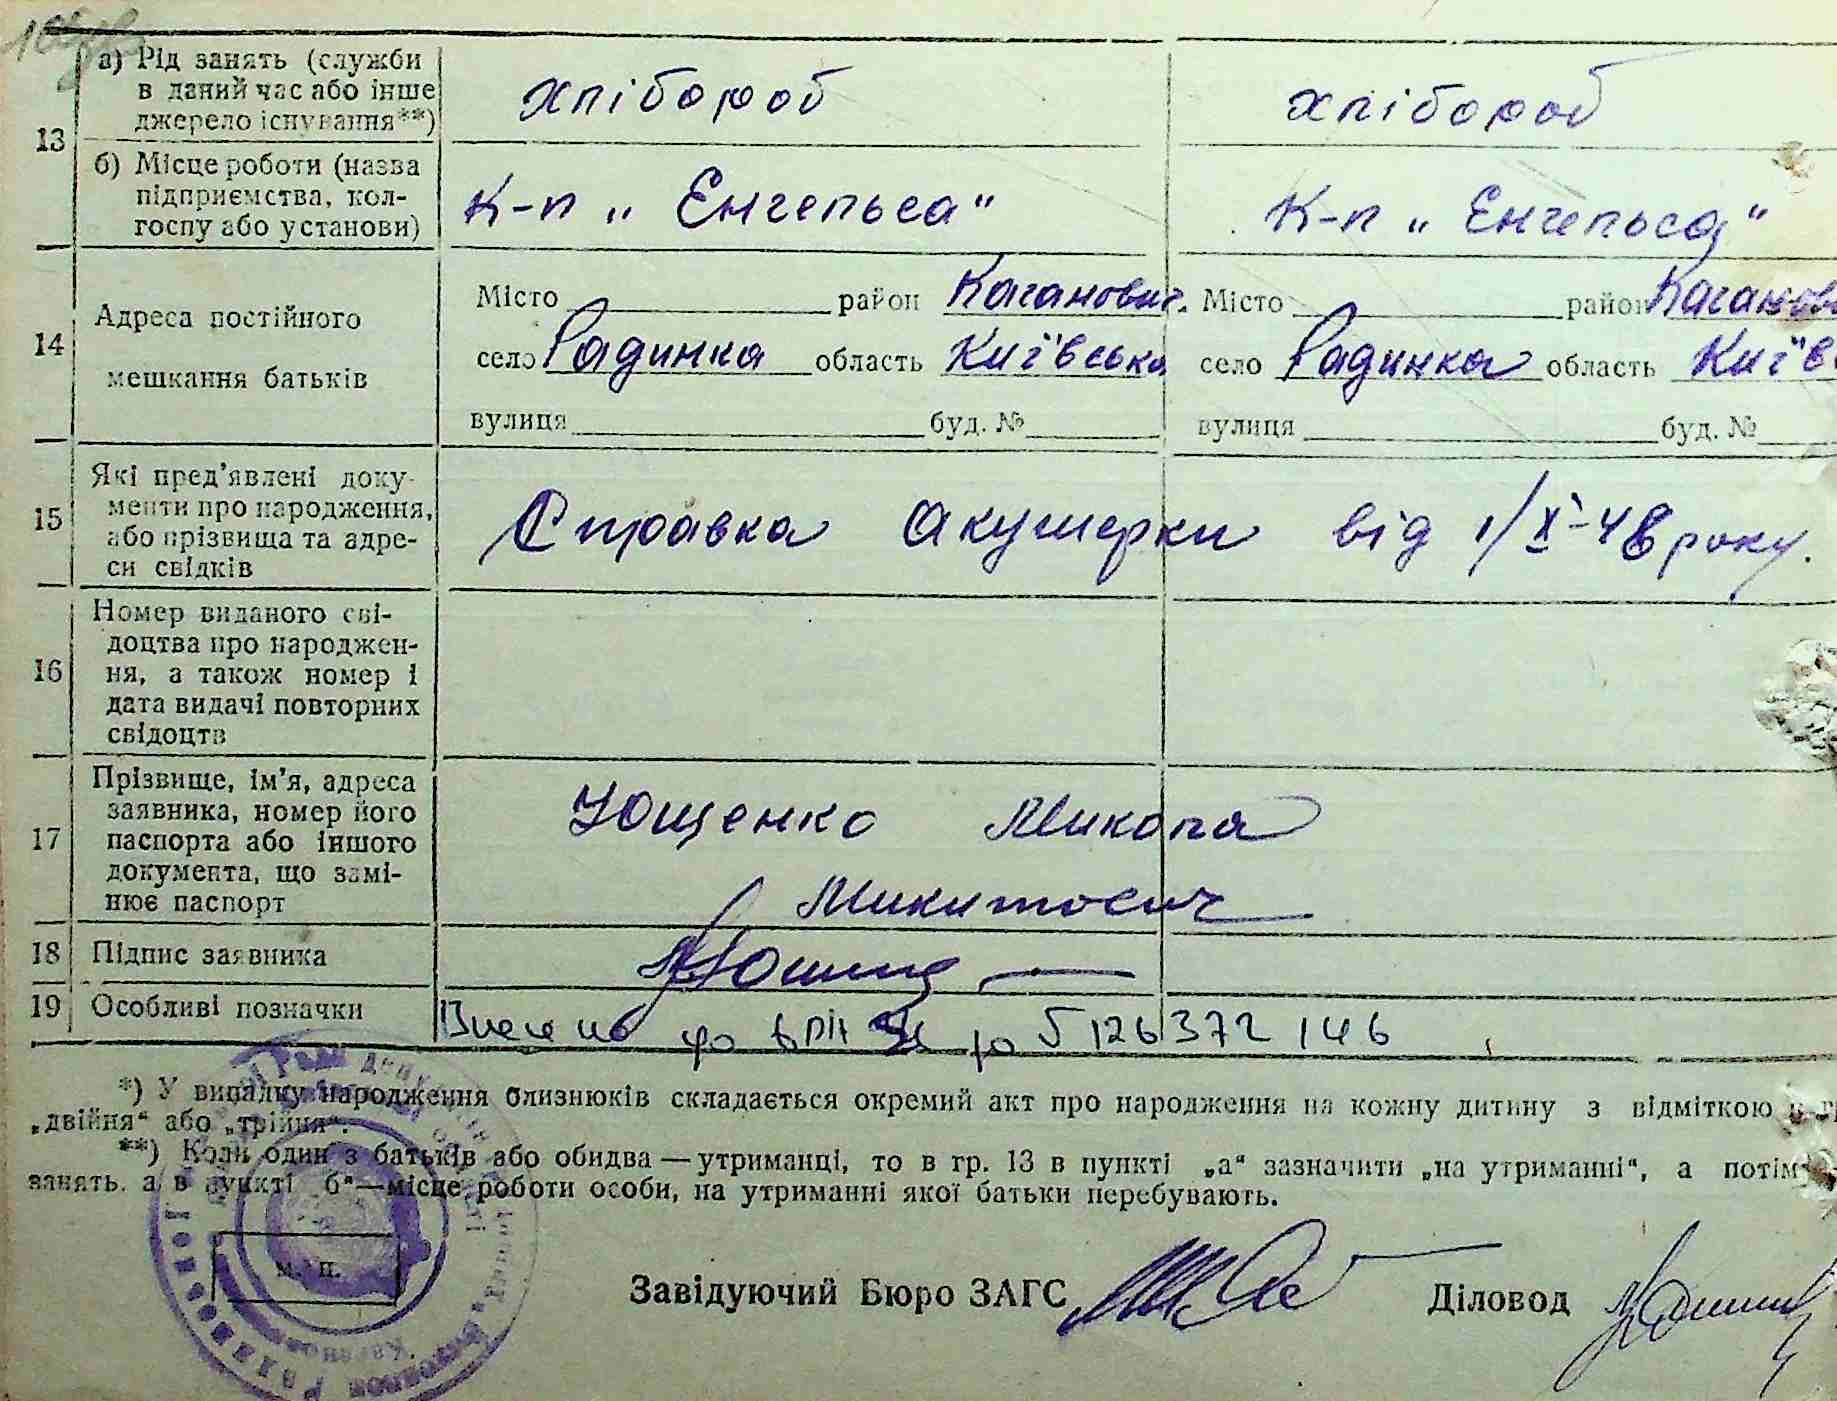 13 а) Рід занять (служби в даний час або інше джерело існування**) хлібороб хлібороб
б) Місце роботи (назва підприємства, колгоспу або установи) к-п „Енгельса" к-п „Енгельса"
14 Адреса постійного мешкання батьків
Місто район Каганович. Місто район Каганов
село Радинка область Київська село Радинка область Київ
вулиця буд. № вулиця буд. №
15 Які пред'явлені документи про народження, або прізвища та адреси свідків Справка акушерки від 1/X-48 року.
16 Номер виданого свідоцтва про народження, а також номер і дата видачі повторних свідоцтв
17 Прізвище, ім'я, адреса заявника, номер його паспорта або іншого документа, що замінює паспорт Ющенко Микола
Микитович
18 Підпис заявника
19 Особливі позначки Внесено до
*) У випадку народження близнюків складається окремий акт про народження на кожну дитину з відміткою в гр
„двійня" або „трійня".
**) Коли один з батьків або обидва — утриманці, то в гр. 13 в пункті „а" зазначити „на утриманні", а потім
занять, а в пункті б"—місце роботи особи, на утриманні якої батьки перебувають.
м. п.
Завідуючий Бюро ЗАГС Діловод